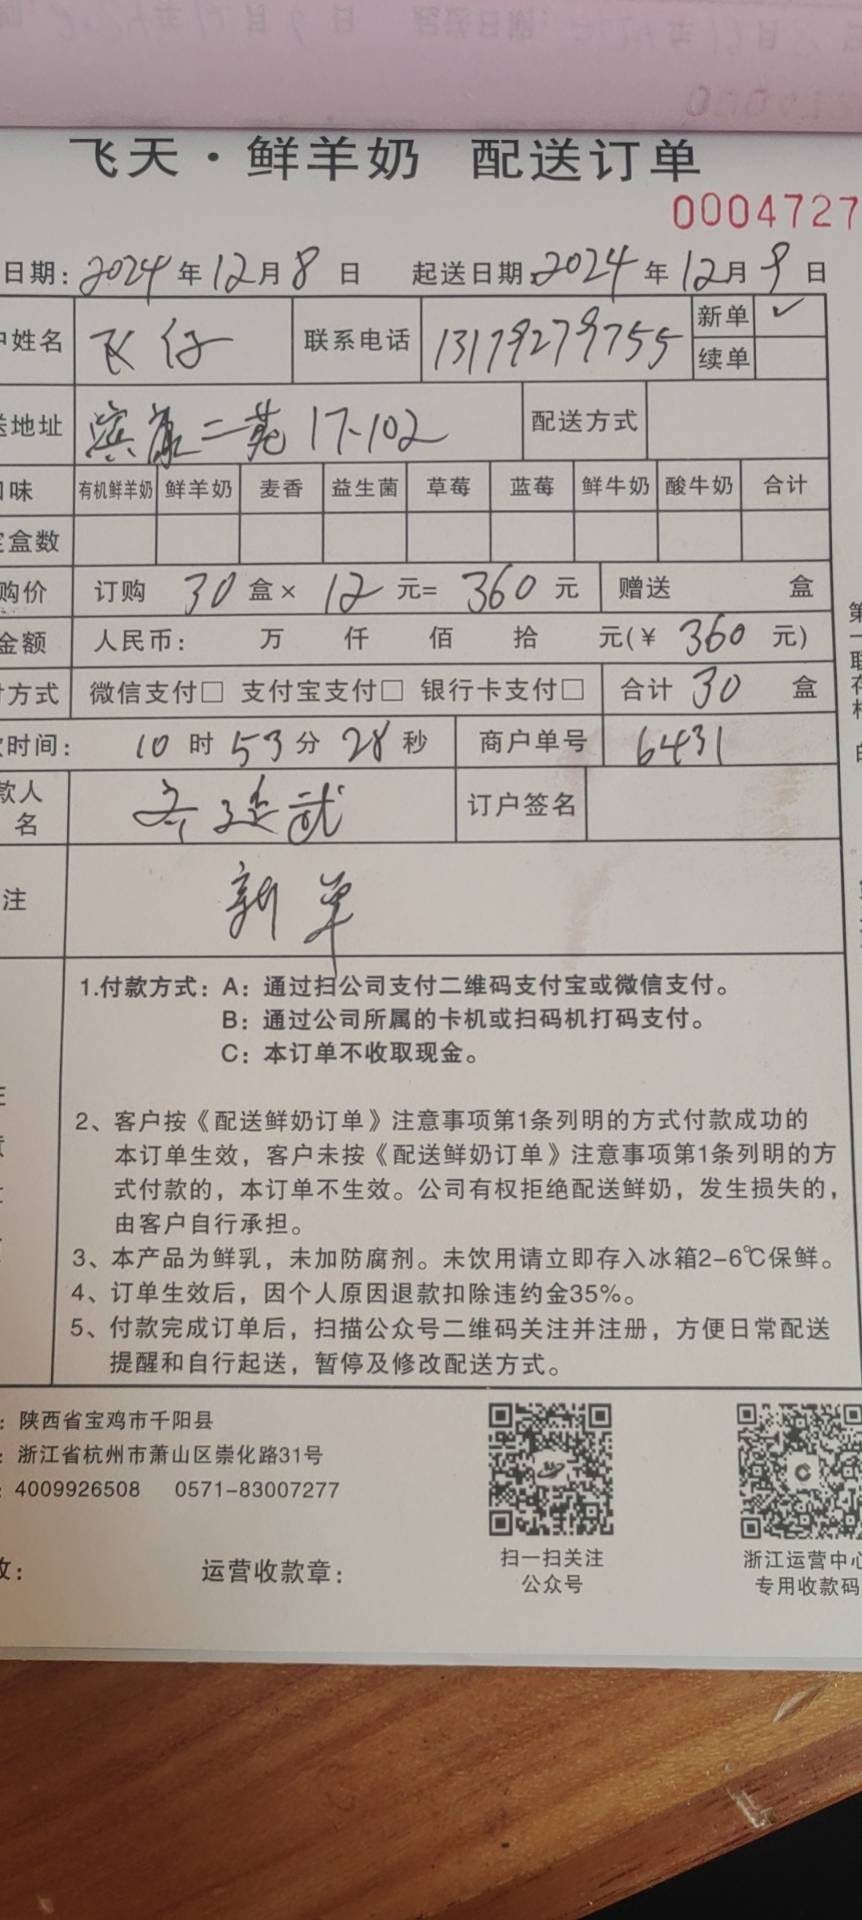 飞天·鲜羊奶 配送订单
0004727
日期: 2024年12月8日 起送日期 2024年12月9日
姓名 飞仔 联系电话 13179279755 新单 ✓
续单
地址 滨康二苑 17-102 配送方式
味 有机鲜羊奶 鲜羊奶 麦香 益生菌 草莓 蓝莓 鲜牛奶 酸牛奶 合计
盒数
购价 订购 30 盒× 12 元= 360 元 赠送 盒
金额 人民币: 万 仟 佰 拾 元(¥ 360 元)
方式 微信支付□ 支付宝支付□ 银行卡支付□ 合计 30 盒
时间: 10 时 53 分 28 秒 商户单号 6431
款人
名 订户签名
注 新单
1.付款方式: A: 通过扫公司支付二维码支付宝或微信支付。
B: 通过公司所属的卡机或扫码机打码支付。
C: 本订单不收取现金。
2、客户按《配送鲜奶订单》注意事项第1条列明的方式付款成功的
本订单生效，客户未按《配送鲜奶订单》注意事项第1条列明的方
式付款的，本订单不生效。公司有权拒绝配送鲜奶，发生损失的，
由客户自行承担。
3、本产品为鲜乳，未加防腐剂。未饮用请立即存入冰箱2-6℃保鲜。
4、订单生效后，因个人原因退款扣除违约金35%。
5、付款完成订单后，扫描公众号二维码关注并注册，方便日常配送
提醒和自行起送，暂停及修改配送方式。
: 陕西省宝鸡市千阳县
: 浙江省杭州市萧山区崇化路31号
: 4009926508 0571-83007277
运营收款章:
扫一扫关注
公众号
浙江运营中心
专用收款码